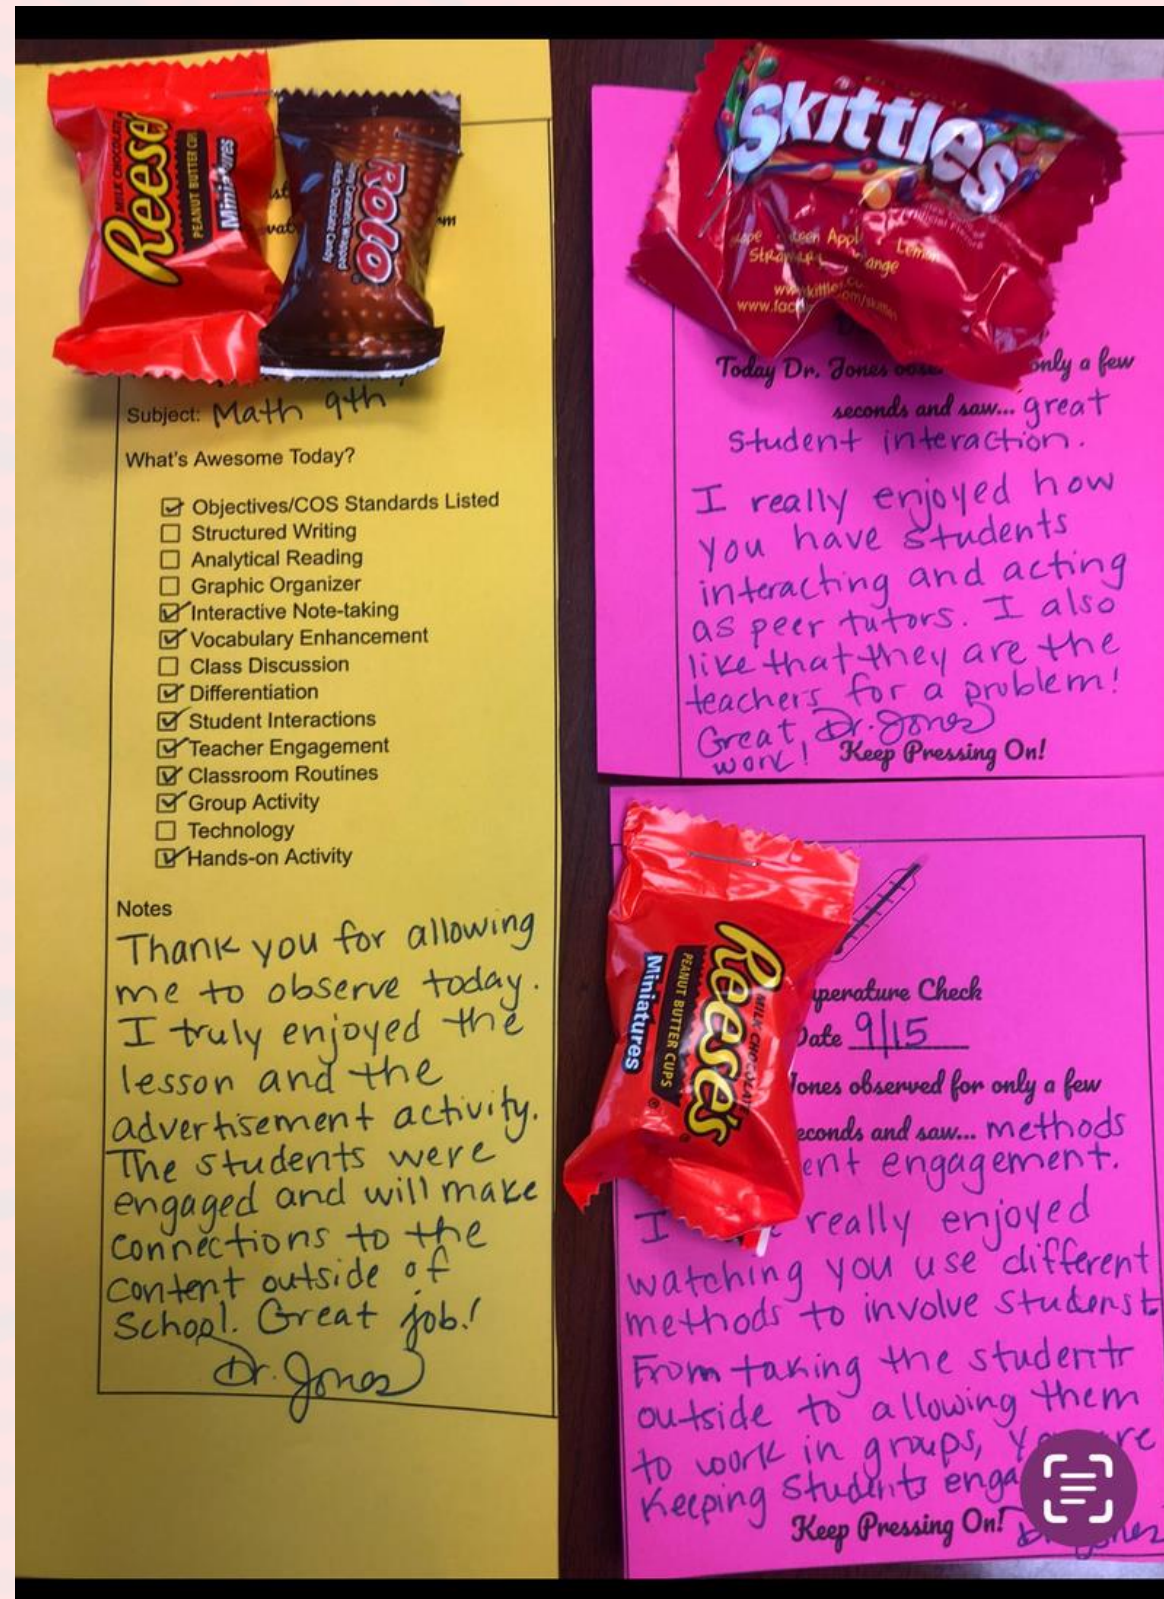 MILK CHOCOLATE
Reese's
PEANUT BUTTER CUPS
Miniatures
ROLO
Subject: Math 9th
What's Awesome Today?
Objectives/COS Standards Listed
Structured Writing
Analytical Reading
Graphic Organizer
Interactive Note-taking
Vocabulary Enhancement
Class Discussion
Differentiation
Student Interactions
Teacher Engagement
Classroom Routines
Group Activity
Technology
Hands-on Activity
Notes
Thank you for allowing
me to observe today.
I truly enjoyed the
lesson and the
advertisement activity.
The students were
engaged and will make
connections to the
content outside of
School. Great job!
Dr. Jones
Skittles
Lemon
Today Dr. Jones only a few
seconds and saw... great
Student interaction.
I really enjoyed how
you have students
interacting and acting
as peer tutors. I also
like that they are the
teachers for a problem!
Great Dr. Jones
work! Keep Pressing On!
Reese's
MILK CHOCOLATE
PEANUT BUTTER CUPS
Miniatures
Check
Date 9/15
Jones observed for only a few
and saw... methods
engagement.
I really enjoyed
watching you use different
methods to involve students
From taking the students
outside to allowing them
to work in groups,
Keeping students
Keep Pressing On!